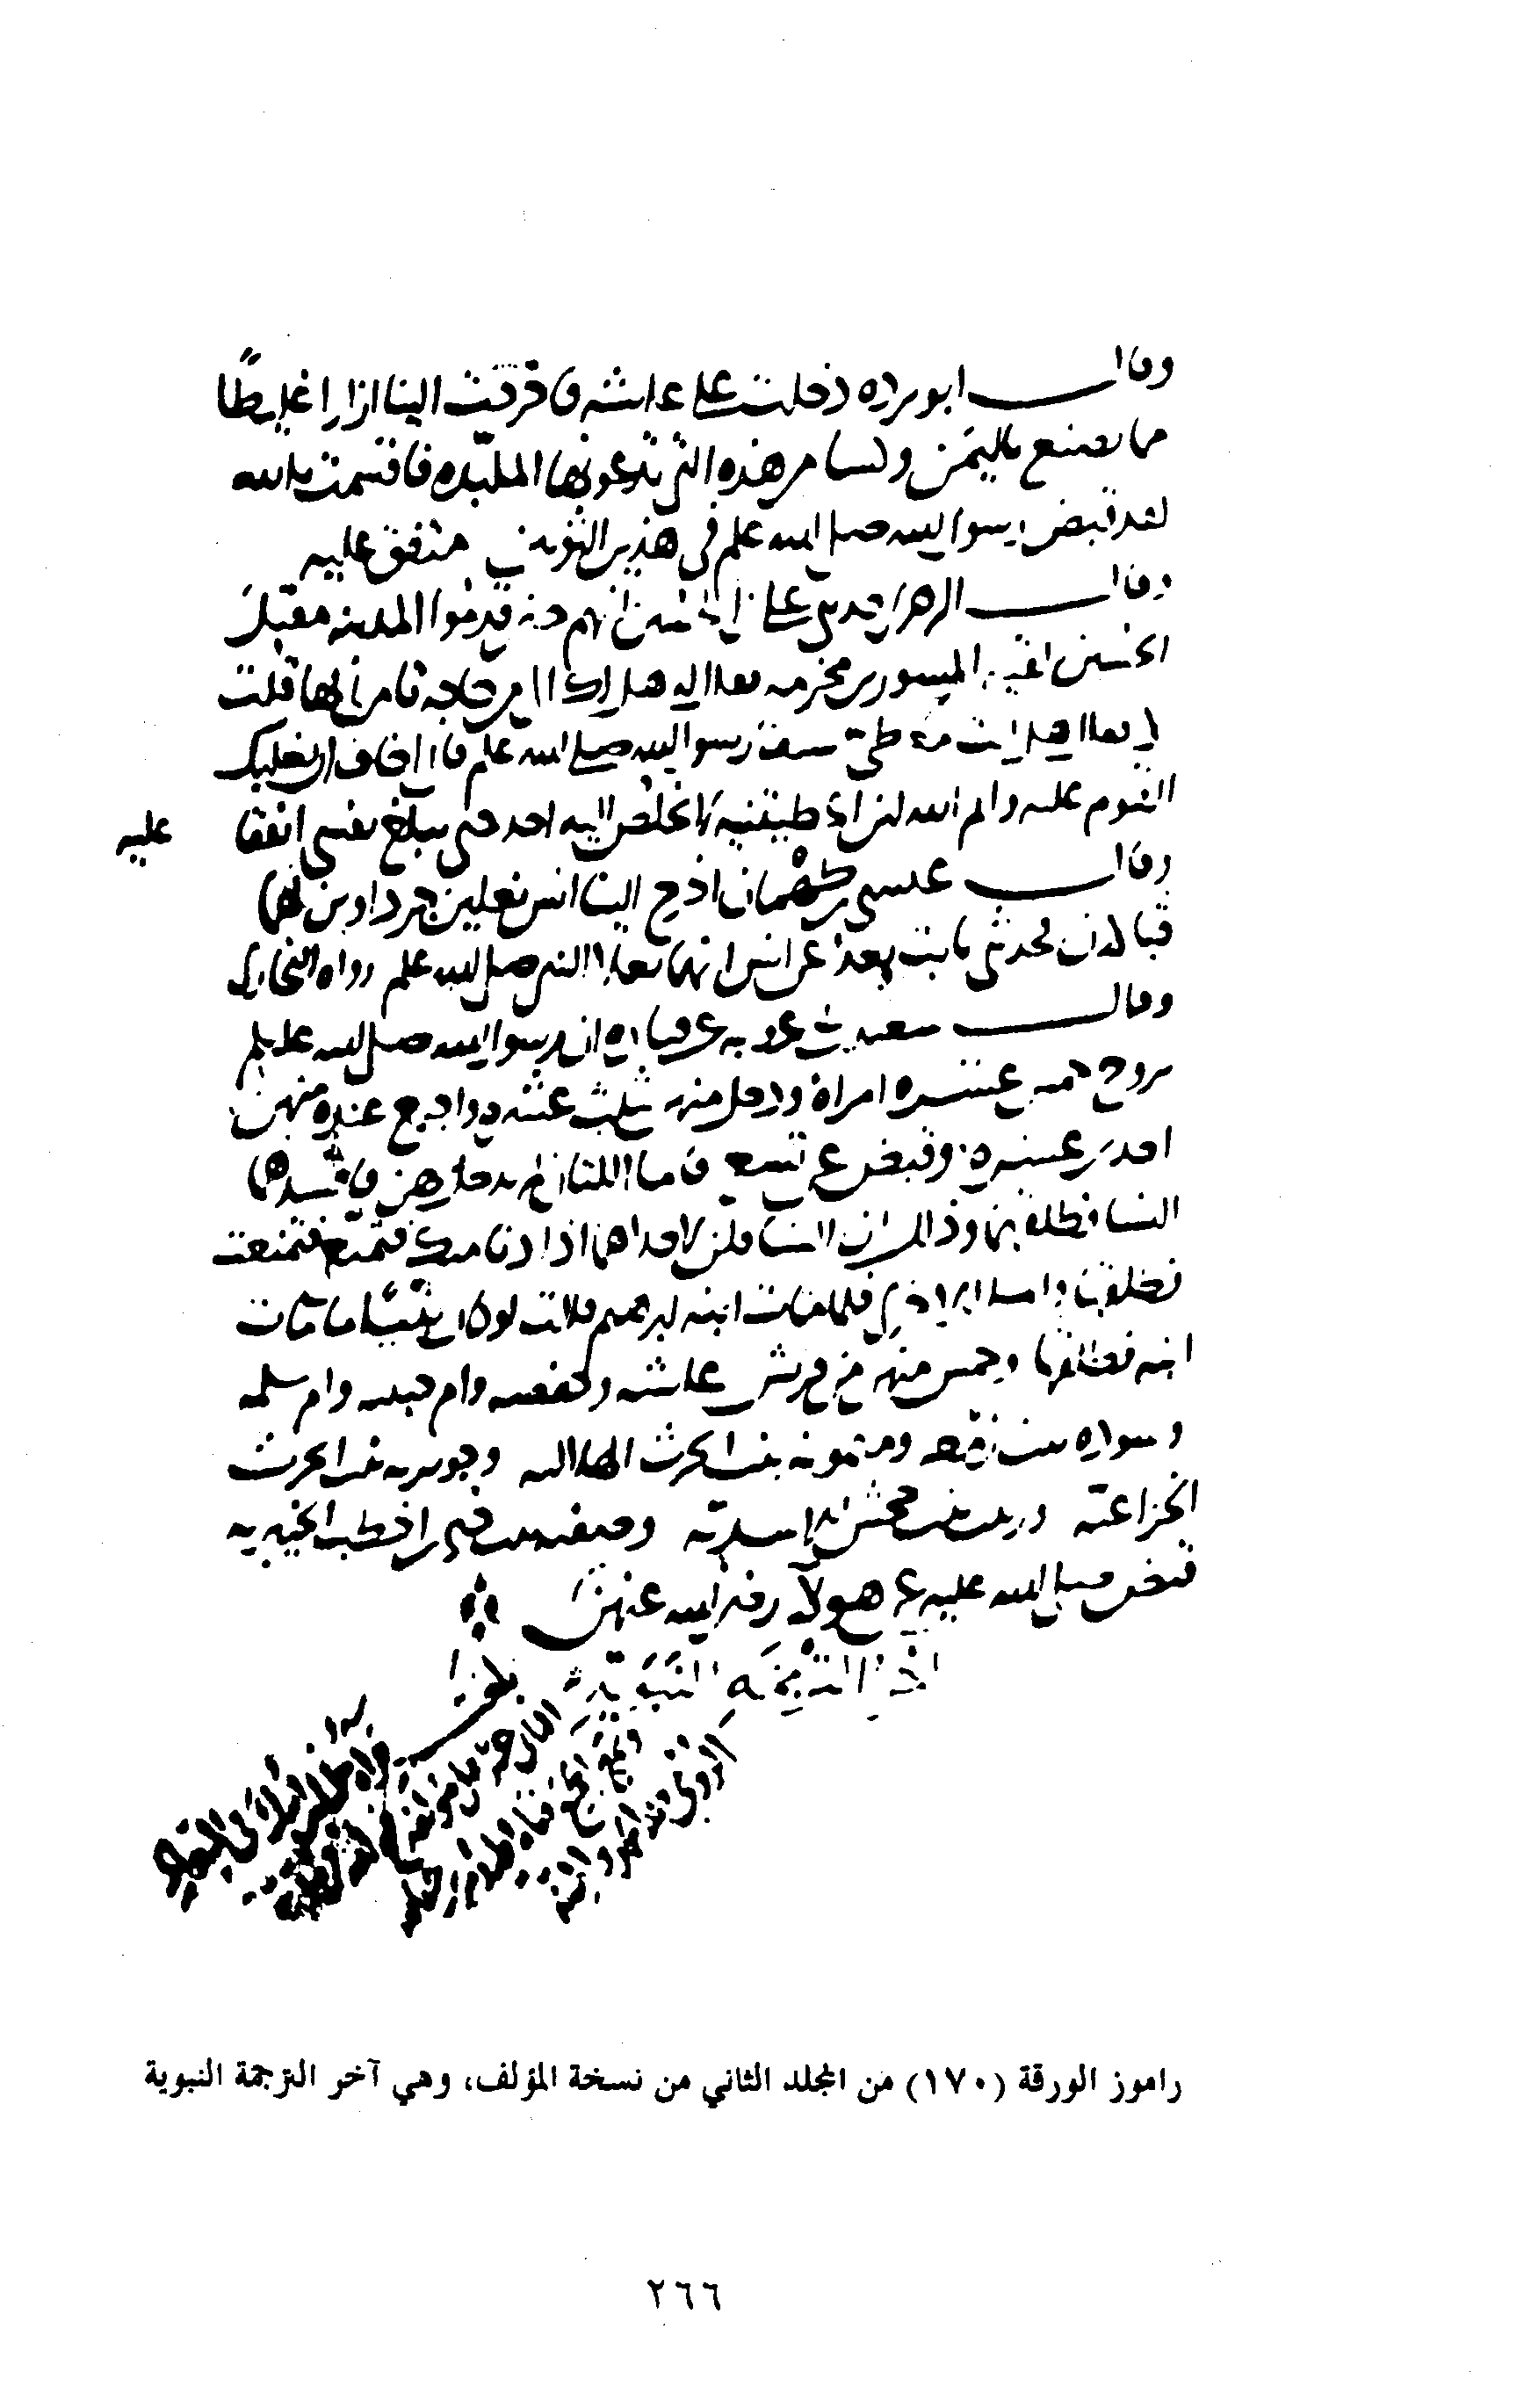 وقال ابو برده دخلت على عائشه فاخرجت الينا ازارا غليظًا
مما يصنع باليمن وكسا من هذه التي تدعونها الملبّده فاقسمت بالله
لقد قبض رسول الله صلى الله عليه وسلم في هذين الثوبين متفق عليه
وقال الزهري حدثني علي بن الحسين انهم حين قدموا المدينه مقتل
الحسين لقيه المسور بن مخرمه فقال له هل لك الي من حاجه تامرني بها قلت
لا فقال هل انت معطيّ سيف رسول الله صلى الله عليه وسلم فاني اخاف ان يغلبك
القوم عليه وايم الله لئن اعطيتنيه لا يخلص اليه احد حتى يبلغ نفسي اتفقا عليه
وقال عيسى بن طهمان اخرج الينا انس نعلين جرداوين لهما
قبالان فحدثني ثابت بعد عن انس انهما نعلا النبي صلى الله عليه وسلم رواه البخاري
وقال سعيد بن ابي عروبه عن قتاده ان رسول الله صلى الله عليه وسلم
تزوج خمس عشره امراة ودخل منهن بثلاث عشره واجتمع عنده منهن
احدى عشره وقبض عن تسع فاما اللتان لم يدخل بهن فافسدهما
النسا فطلقهما وذلك ان النسا قلن لاحداهما اذا دنا منك فتمنعي فتمنعت
فطلقها واما الاخرى فلما مات ابنه ابرهيم قالت لو كان نبيًّا ما مات
ابنه فطلقها وخمس منهن من قريش عائشه وحفصه وام حبيبه وام سلمه
وسوده بنت زمعه وميمونه بنت الحرث الهلاليه وجويريه بنت الحرث
الخزاعيه وزينب بنت جحش الاسديه وصفيه بنت حيي بن اخطب الخيبريه
قبض صلى الله عليه عن هولاء رضي الله عنهن
اخر الترجمه النبويه
راموز الورقة (١٧٠) من المجلد الثاني من نسخة المؤلف، وهي آخر الترجمة النبوية
٢٦٦